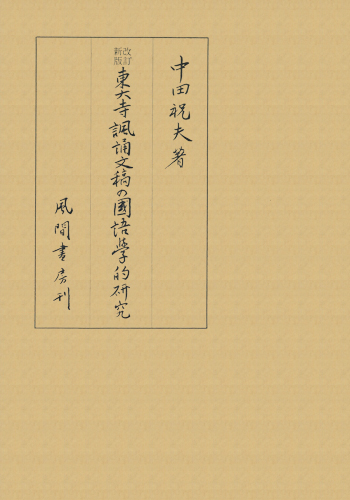 中田祝夫著
改訂新版
東大寺諷誦文稿の國語學的研究
風間書房刊